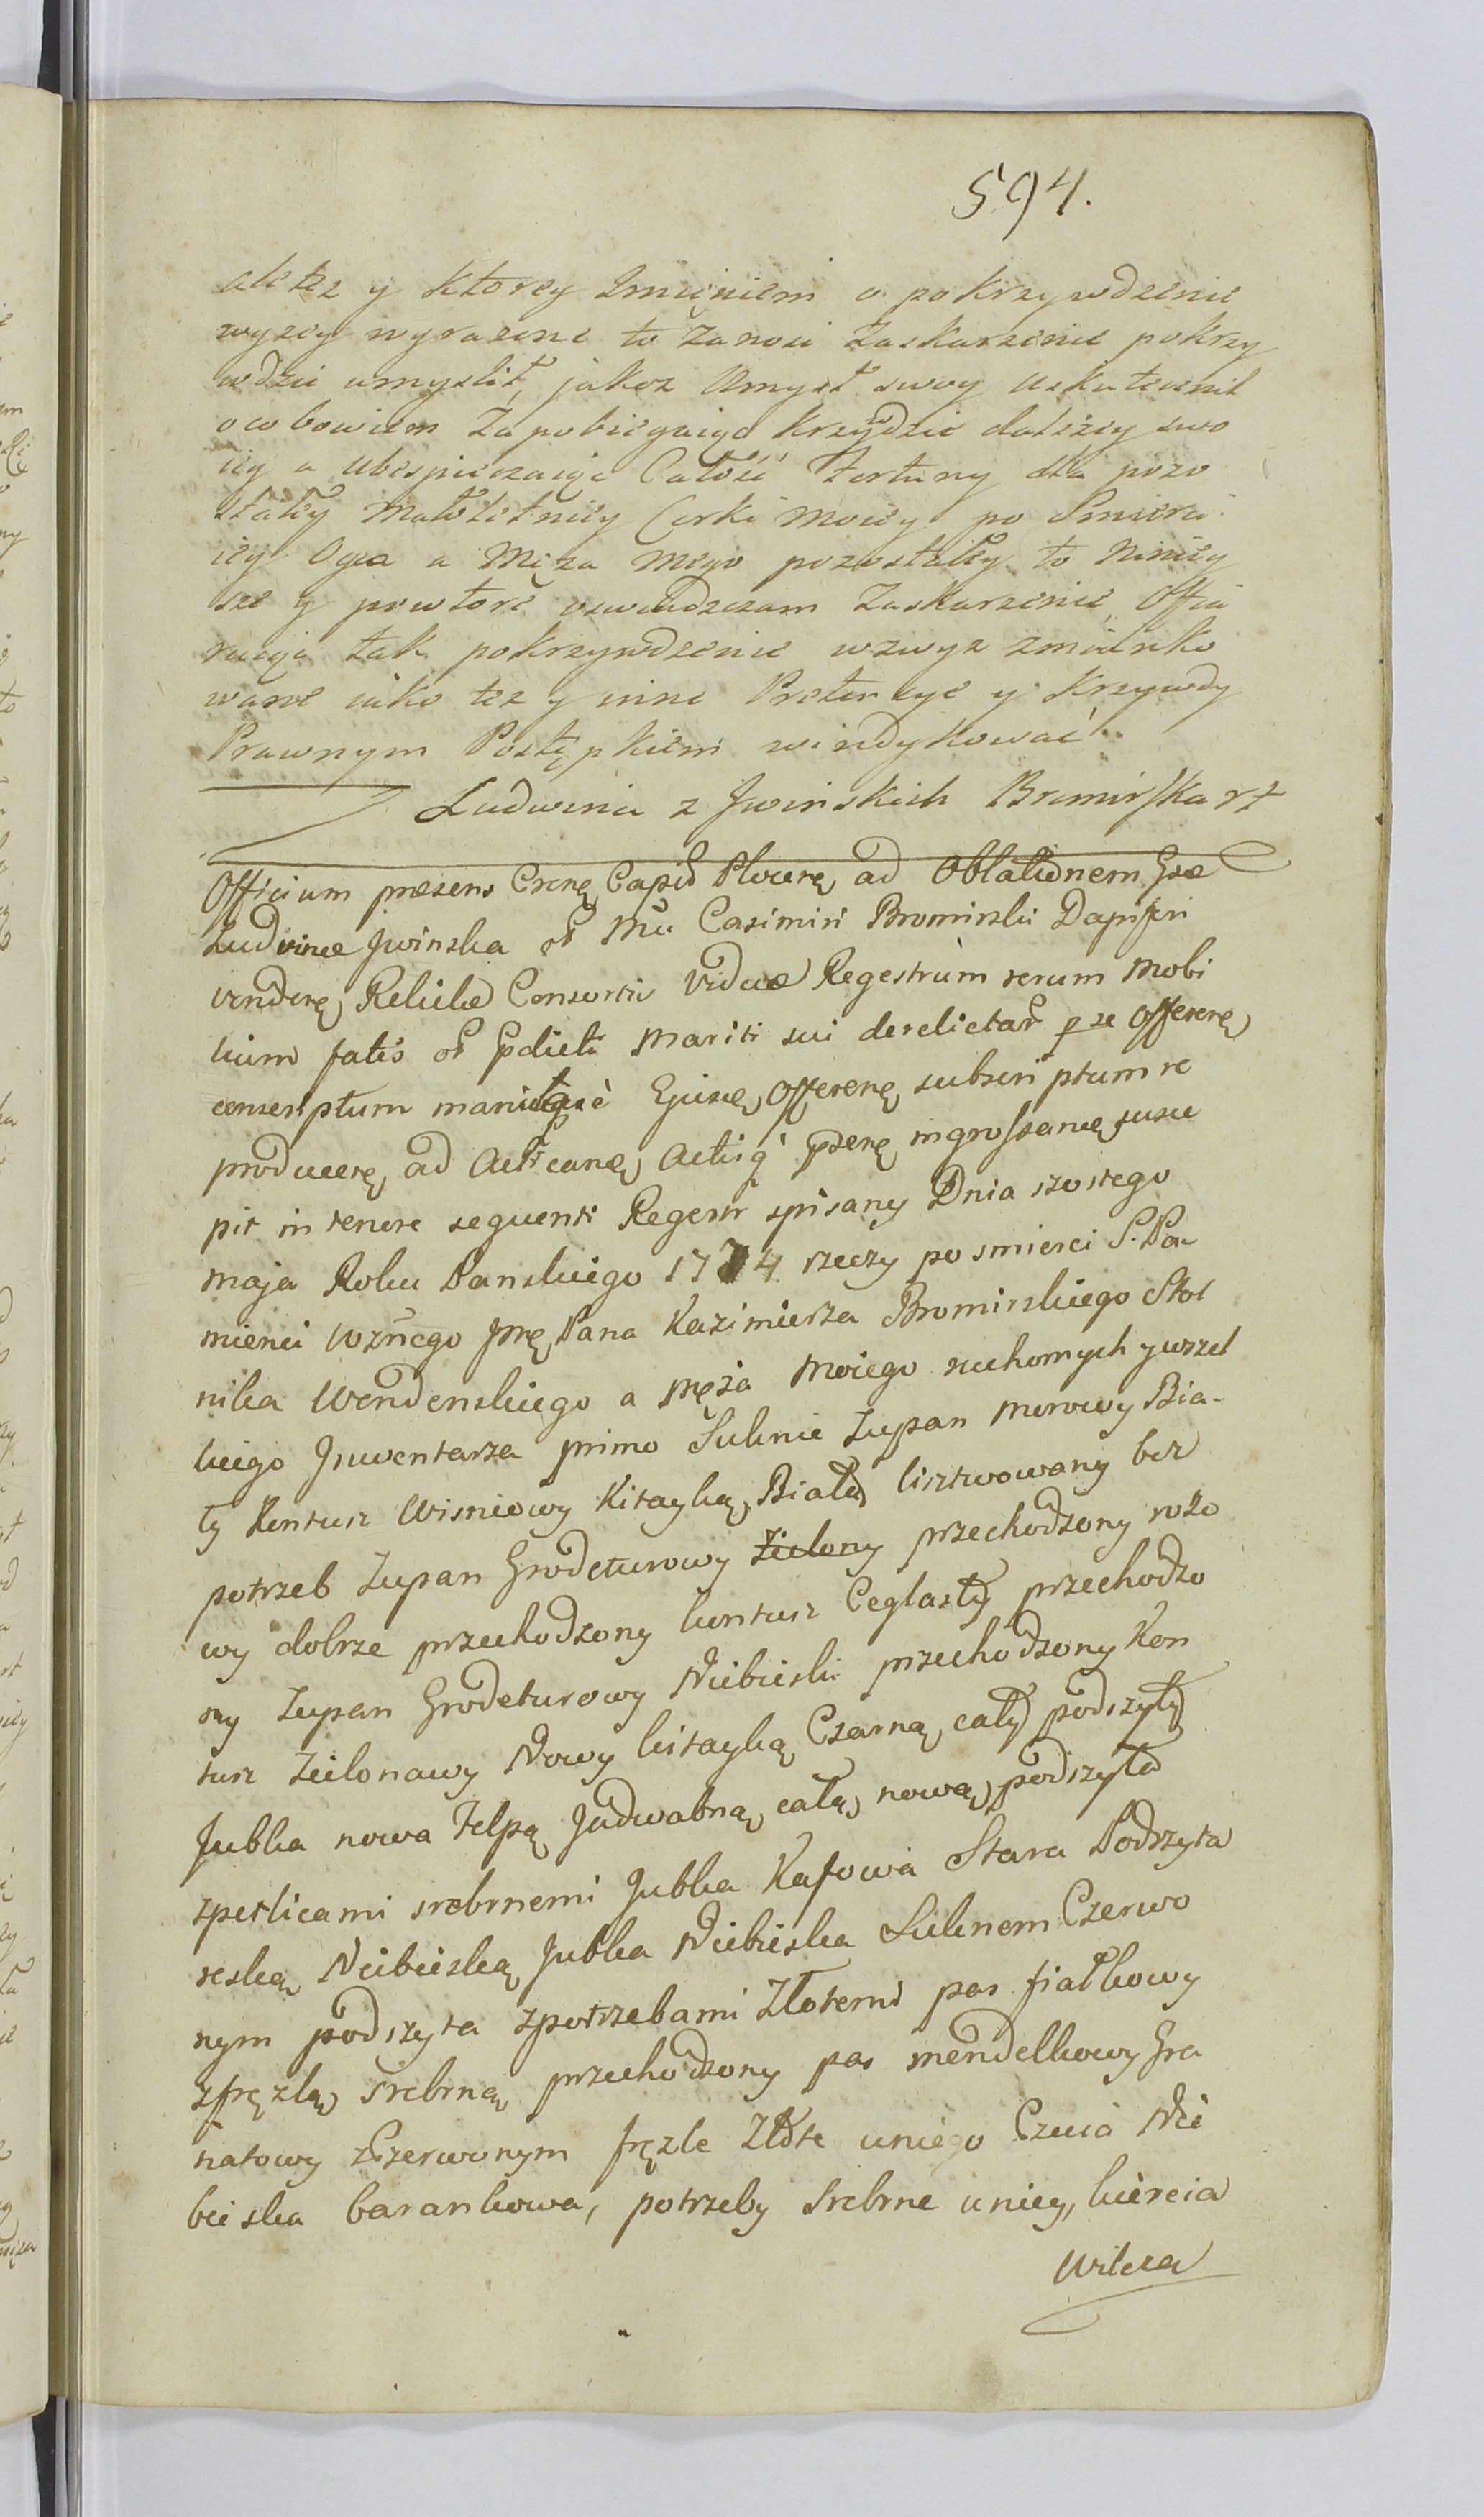 594.
ale tez y ktorey Imieniem o pokrzywdzenie
wyzey wyrazene to zanosi Zaskarzenie pokrzy
wdzić umyslił, jakoz Umysł swoy uskutecznił
owo bowiem Zapobiegaiąc krzywdzie dalszey swo
iey a ubespieczaiąc Całość Fortuny dla pozo
stałey małoletniey Corki moiey po Smierci
iey Oyca a Męza mego pozostałey to niniey
sze y powtore oswiadczam Zaskarzenie, Offia
ruiąc tak pokrzywdzenie wzwyz zmianko
wane iako tez y inne Pretensye y Krzywdy
Prawnym Postępkiem windykować
Ludwina z Jwinskich Bromirska rz
Officium præsens Crenę Capts Plocenę ad Oblationem Gsæ
Ludvinæ Jwinska ol Mci Casimiri Bromirski Dapiferi
vendenę Relictæ Consortis Viduæ Regestrum rerum mobi
lium fatis ol Gdicti Mariti sui derelictar p se Offerenę
conscriptum manuque Ejusdę Offerenę subscriptum re
producenę ad Acticanę Actisq psenę ingrossanę susce
pit in tenore sequenti Regestr spisany Dnia szostego
Maja Roku Panskiego 1774 rzeczy po smierci S. Pa
mienci Wznego Jmę Pana Kazimierza Bromirskiego Stol
nika Wendenskiego a Męża Moiego ruchomych y wszel
kiego Jnwentarza primo Suknie Zupan morowy Bia-
ły Kontusz Wisniowy Kitayką Białą lisztwowany bez
potrzeb Zupan Grodeturowy Zielony przechodzony rożo
wy dobrze przechodzony kontusz Ceglasty przechodzo
ny Zupan Grodeturowy Niebieski przechodzony Kon
tusz Zielonawy Nowy kitayką Czarną cały podszyty
Jubka nowa Felpą Jadwabną całą nową podszyta
zpetlicami srebrnemi Jubka Kafowa Stara Podszyta
reską Niebieską Jubka Niebieska Suknem Czerwo
nym podszyta zpotrzebami Złotemi pas fiałkowy
zfręzlą srebrną przechodzony pas mendelkowy Gra
natowy zCzerwonym fręzle Złote uniego Czuia Nie
bieska barankowa, potrzeby Srebrne uniey, kiereia
Wilcza